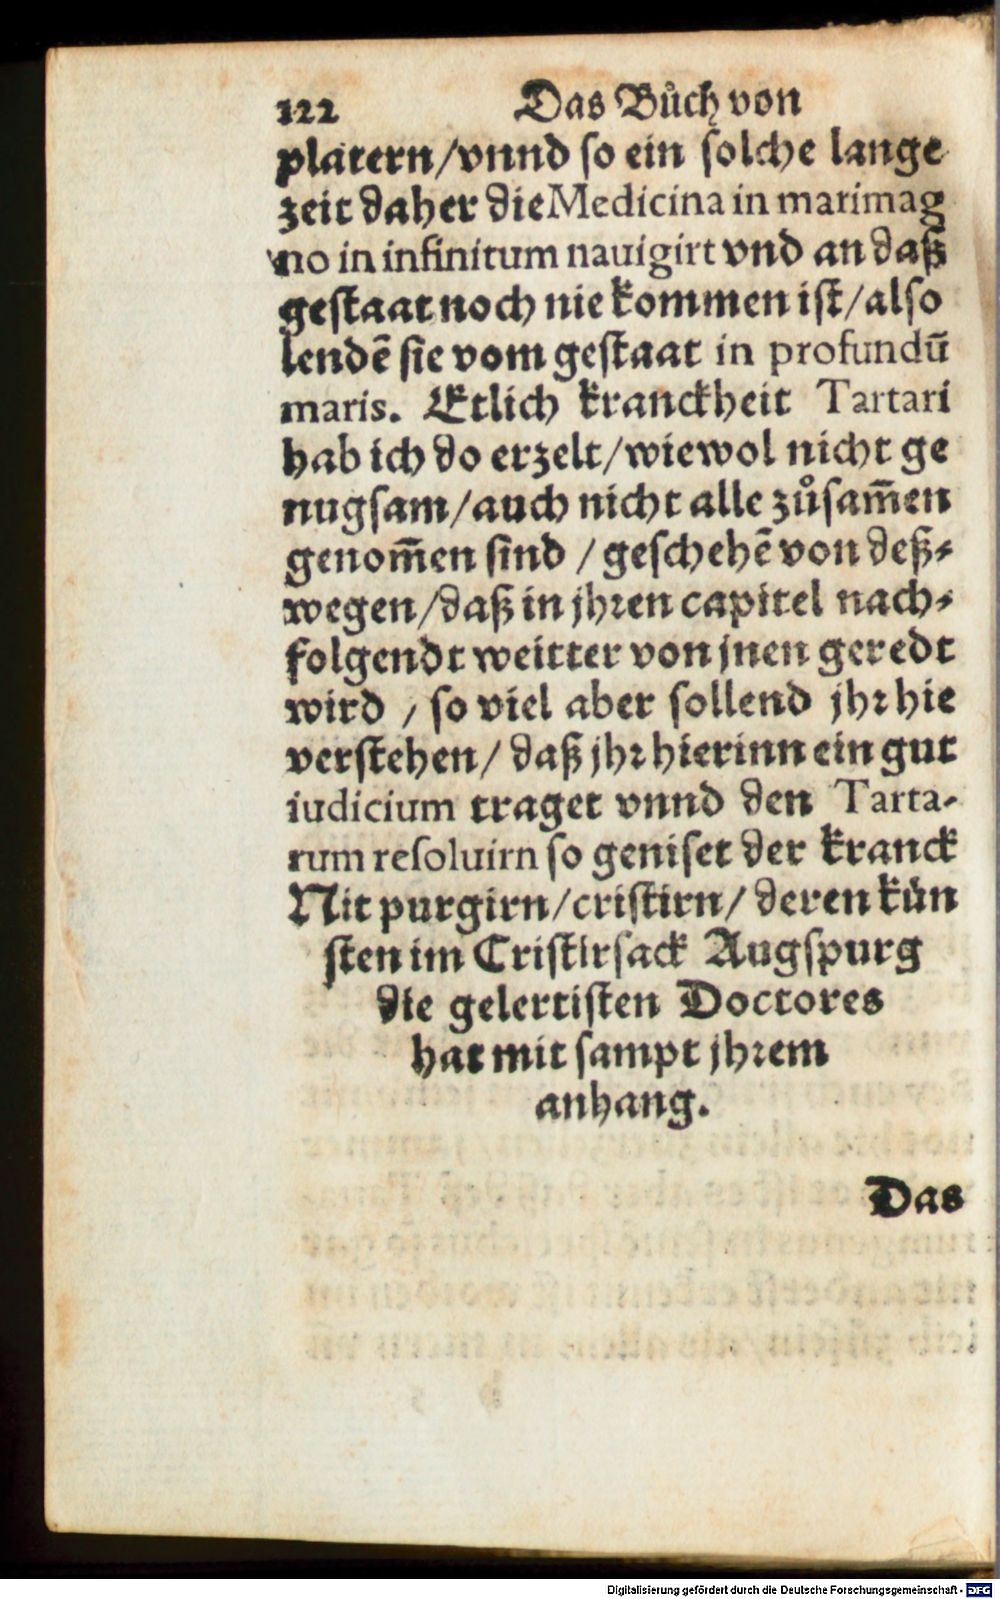 122 Das Bůch von
platern/vnnd so ein solche lange
zeit daher die Medicina in marimag
no in infinitum nauigirt vnd an daß
gestaat noch nie kommen ist/also
lendē sie vom gestaat in profundū
maris. Etlich kranckheit Tartari
hab ich do erzelt/wiewol nicht ge
nugsam/auch nicht alle zůsam̄en
genom̄en sind / geschehē von deß⸗
wegen/daß in jhren capitel nach⸗
folgendt weitter von jnen geredt
wird / so viel aber sollend jhr hie
verstehen/ daß jhr hierinn ein gut
iudicium traget vnnd den Tarta-
rum resoluirn so geniset der kranck
Nit purgirn/cristirn/ deren kün
sten im Cristirsack Augspurg
die gelertisten Doctores
hat mit sampt jhrem
anhang.
Das
Digitalisierung gefördert durch die Deutsche Forschungsgemeinschaft - DFG